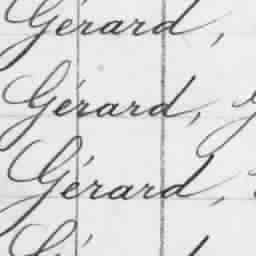 Gérard,
Gérard,
Gérard,